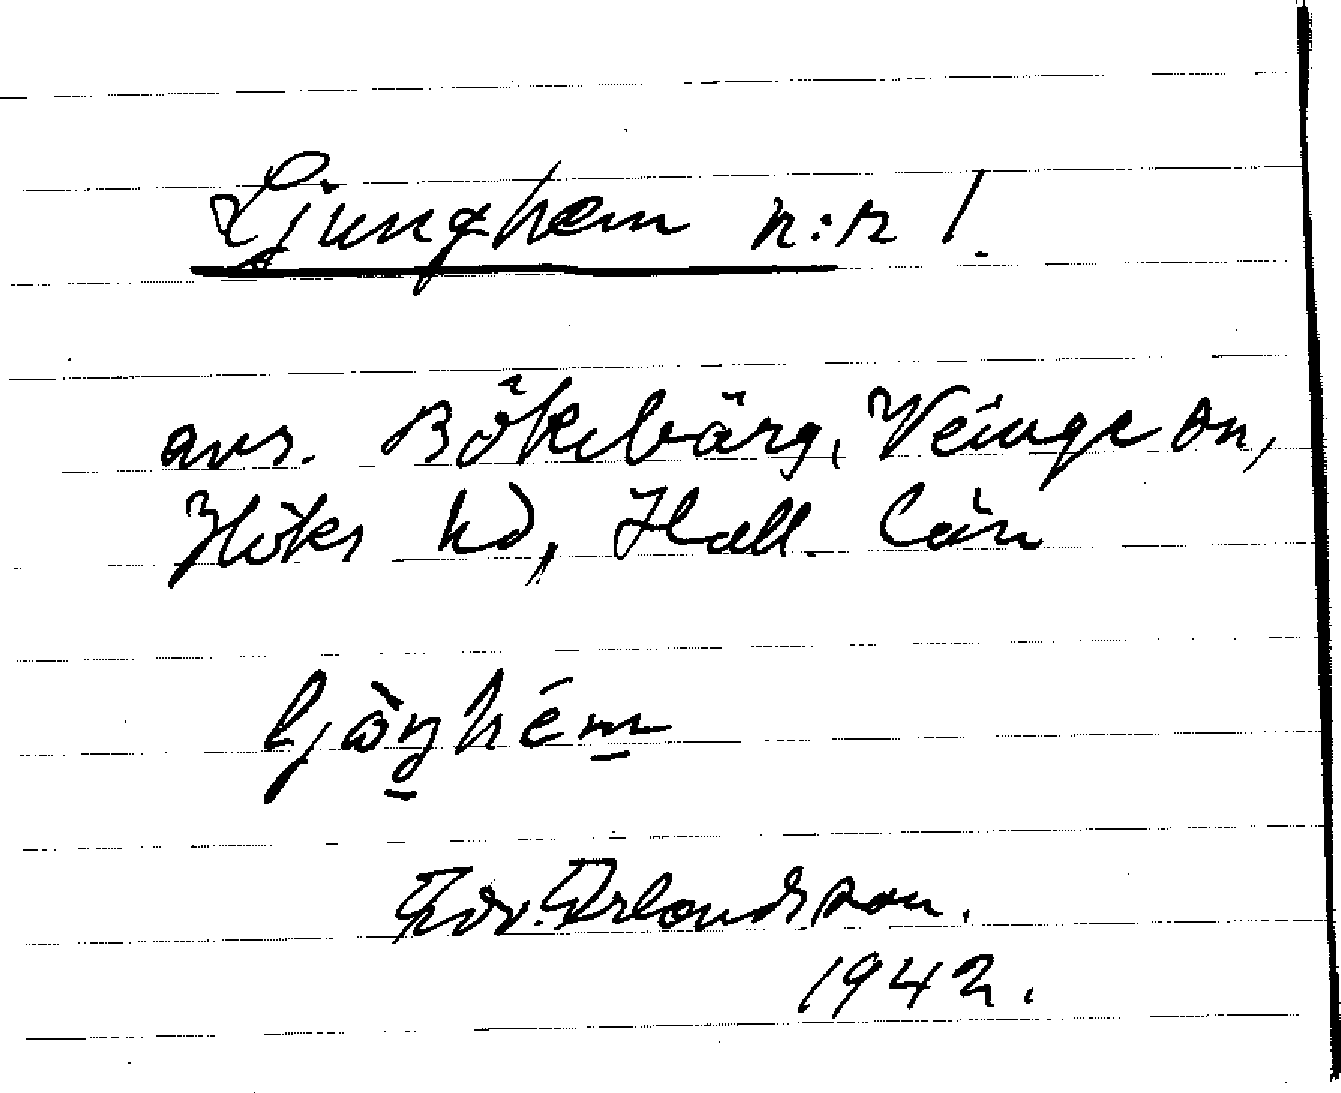 Ljunghem n:r 1.
avs. Bökebärg, Veinge sn,
Höks hd, Hall. län
ljo̊ŋhém
Edv. Erlandsson.
1942.